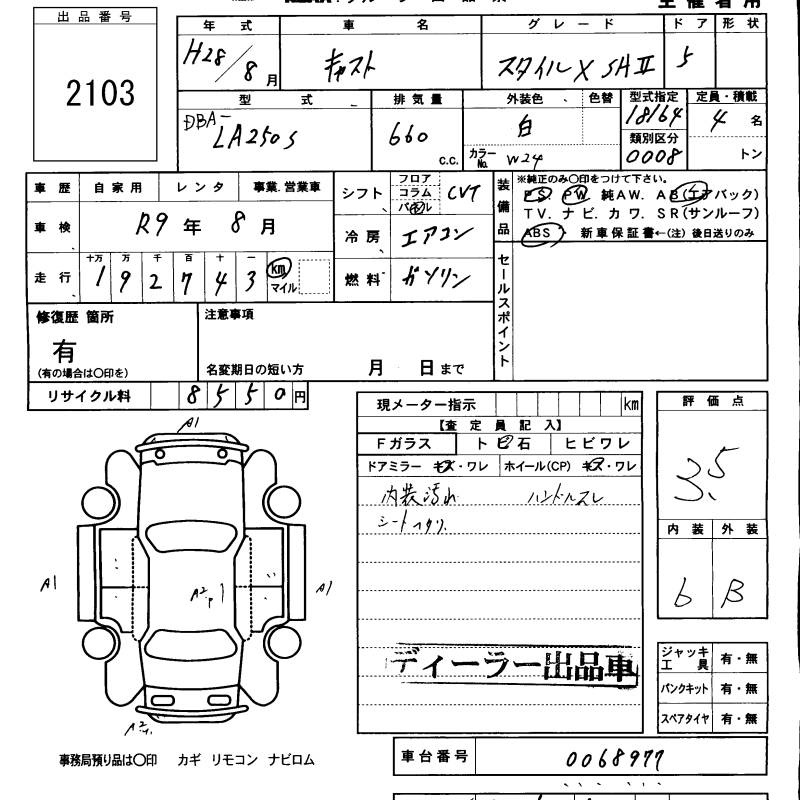 出品番号
2103
年式 車名 グレード ドア 形状
H28/8月 キャスト スタイルX SAⅡ 5
型式 排気量 外装色 色替 型式指定 定員・積載
DBA-LA250S 660 c.c. 白 18164 4名
カラーNo. W24 類別区分 0008 トン
車歴 自家用 レンタ 事業.営業車
シフト フロア コラム パネル CVT
車検 R9年8月
冷房 エアコン
走行 十万 万 千 百 十 一
192743 km マイル
燃料 ガソリン
装備品
※純正のみ○印をつけて下さい。
PS. PW. 純AW. AB(エアバック)
TV. ナビ. カワ. SR(サンルーフ)
ABS 新車保証書←(注) 後日送りのみ
セールスポイント
修復歴 箇所
有
(有の場合は○印を)
注意事項
名変期日の短い方 月 日まで
リサイクル料 8550円
現メーター指示 km
【査定員記入】
Fガラス トビ石 ヒビワレ
ドアミラー キズ・ワレ ホイール(CP) キズ・ワレ
内装汚れ ハンドルスレ
シートヘタリ.
ディーラー出品車
評価点
3.5
内装 外装
6 B
ジャッキ工具 有・無
パンクキット 有・無
スペアタイヤ 有・無
A1
A1
A2
A1
A2
事務局預り品は○印 カギ リモコン ナビロム
車台番号 0068977